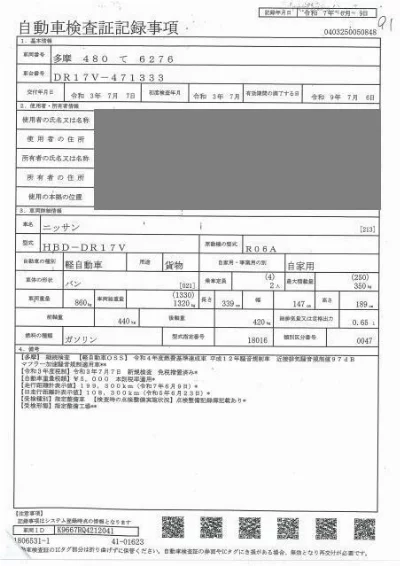 記録年月日 令和 7年 6月 9日
91
自動車検査証記録事項
0403250050848
1. 基本情報
車両番号 多摩 480 て 6276
車台番号 DR17V-471333
交付年月日 令和 3年 7月 7日 初度検査年月 令和 3年 7月 有効期間の満了する日 令和 9年 7月 6日
2. 使用者・所有者情報
使用者の氏名又は名称
使用者の住所
所有者の氏名又は名称
所有者の住所
使用の本拠の位置
3. 車両詳細情報
車名 ニッサン [213]
型式 HBD-DR17V 原動機の型式 R06A
自動車の種別 軽自動車 用途 貨物 自家用・事業用の別 自家用
車体の形状 バン [521] 乗車定員 (4) 2人 最大積載量 (250) 350kg
車両重量 860kg 車両総重量 (1330) 1320kg 長さ 339cm 幅 147cm 高さ 189cm
前軸重 440kg 後軸重 420kg 総排気量又は定格出力 0.65L
燃料の種類 ガソリン 型式指定番号 18016 類別区分番号 0047
4. 備考
[多摩] 継続検査 [軽自動車OSS] 令和4年度燃費基準達成車 平成12年騒音規制車 近接排気騒音規制値97dB
マフラー加速騒音規制適用車*
[令和3年度税制] 令和3年7月7日 新規検査 免税措置済み*
[自動車重量税額] ¥5,000 本則税率適用*
[走行距離計表示値] 199,300km (令和7年6月9日)*
[受検種別] 指定整備車 [検査時の点検整備実施状況] 点検整備記録簿記載あり*
[受検形態] 指定整備工場*
[注意事項]
記録事項はシステム登録時点の情報となります
車両ID K9667RQ4212041
1806531-1 41-01623